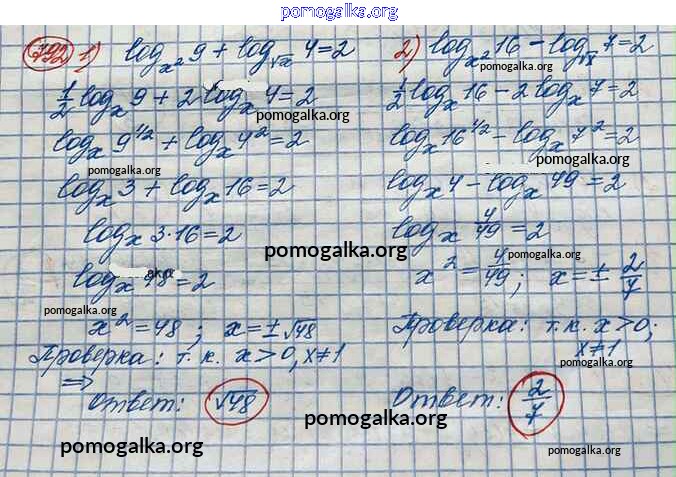 pomogalka.org
792 1) log_{x²} 9 + log_{√x} 4 = 2
½ log_x 9 + 2 log_x 4 = 2
pomogalka.org
log_x 9^{1/2} + log_x 4² = 2
pomogalka.org
log_x 3 + log_x 16 = 2
log_x 3·16 = 2
pomogalka.org
log_x 48 = 2
pomogalka.org
x² = 48; x = ±√48
Проверка: т.к. x > 0, x ≠ 1
⇒
Ответ: √48
pomogalka.org
pomogalka.org
2) log_{x²} 16 − log_{√x} 7 = 2
pomogalka.org
½ log_x 16 − 2 log_x 7 = 2
log_x 16^{1/2} − log_x 7² = 2
pomogalka.org
log_x 4 − log_x 49 = 2
log_x 4/49 = 2
pomogalka.org
x² = 4/49; x = ± 2/7
Проверка: т.к. x > 0;
x ≠ 1
pomogalka.org
Ответ: 2/7
pomogalka.org